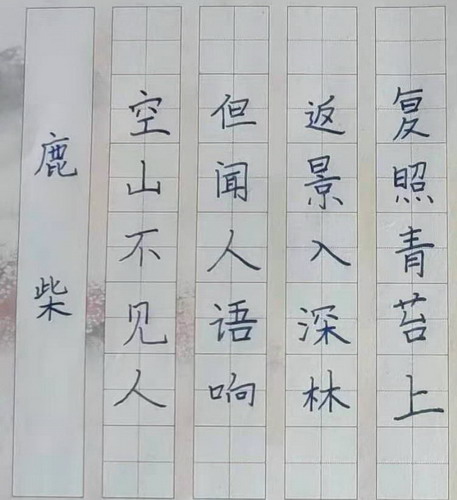 鹿柴
空山不见人
但闻人语响
返景入深林
复照青苔上